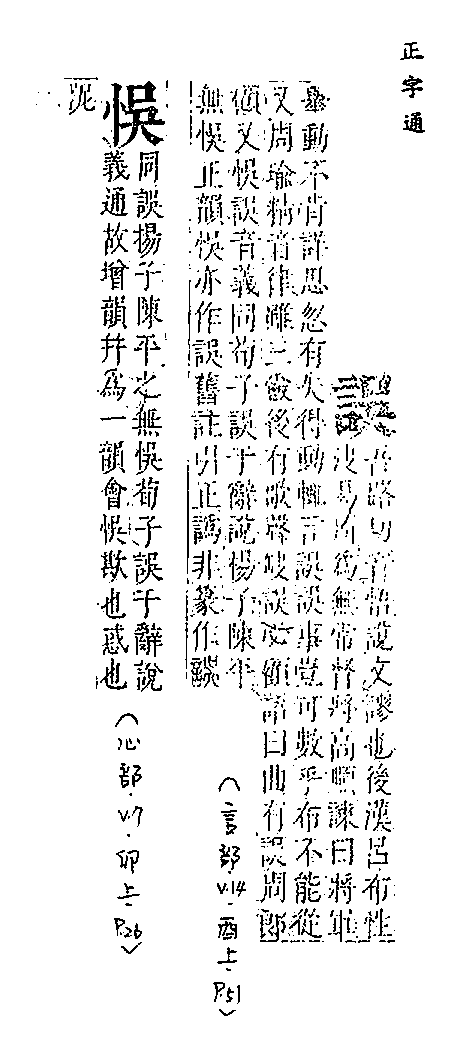 正字通
誤
吾路切音悟說文謬也後漢呂布性
決易所爲無常督將高順諫曰將軍
舉動不肯詳思忽有失得動輒言誤誤事豈可數乎布不能從
又周瑜精音律雖三爵後有歌聲缺誤必顧語曰曲有誤周郎
顧又悞誤音義同荀子誤于辭說楊子陳平
無悞正韻悞亦作誤舊註引正譌非篆作誤
(言部.V.14.酉上.P.51)
悞
同誤揚子陳平之無悞荀子誤于辭說
義通故增韻幷爲一韻會悞欺也惑也
(心部.V.7.卯上.P.26)